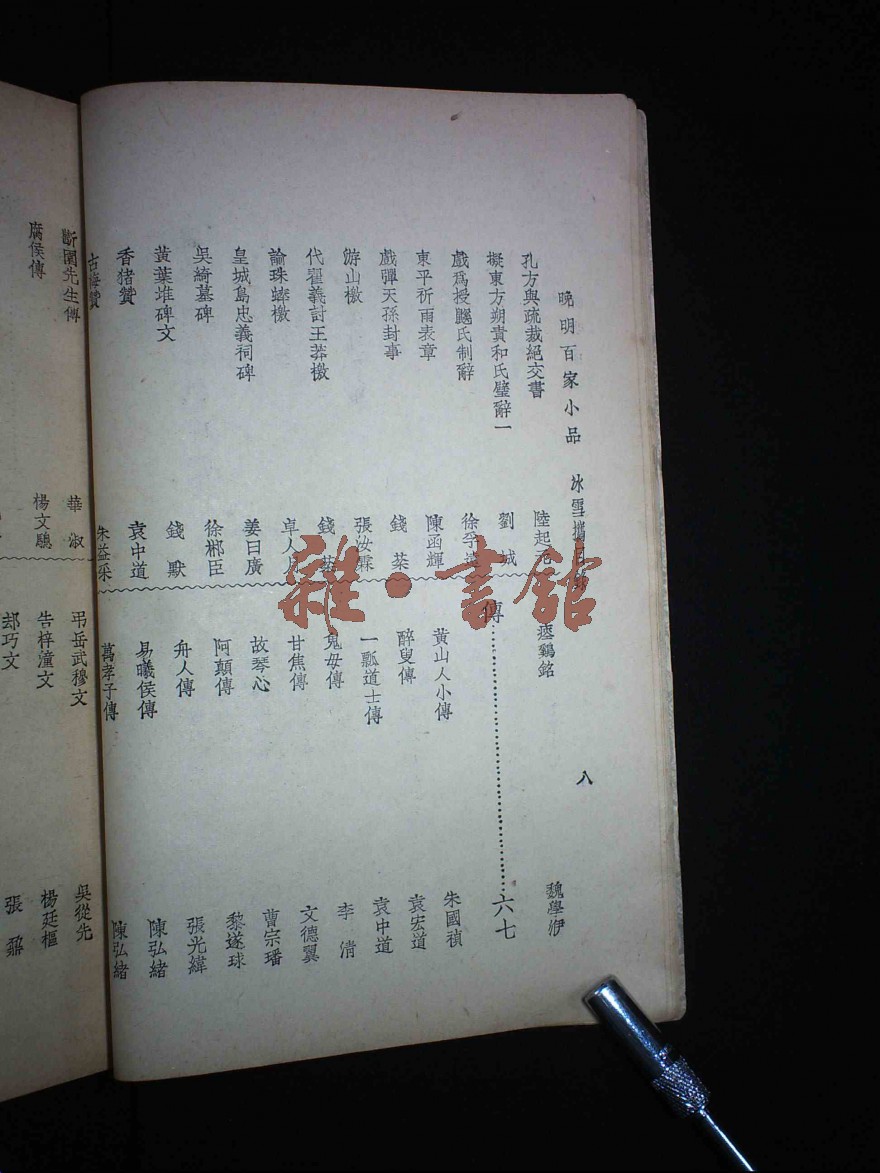 晚明百家小品 冰雪攜
八
孔方與疏裁絕交書 陸起元
擬東方朔責和氏璧辭一 劉城
戲爲授颺氏制辭
東平祈雨表章 陳函輝
戲彈天孫封事 錢棻
游山檄 張汝霖
代翟義討王莽檄 錢棻
諭珠蟀檄 卓人月
皇城島忠義祠碑 姜曰廣
吳綺墓碑 徐郴臣
黃葉堆碑文 錢默
香猪贊 袁中道
古梅贊 朱益采
瘞鷄銘 魏學洢
傳……六七
黃山人小傳 朱國禎
醉叟傳 袁宏道
一瓢道士傳 袁中道
鬼母傳 李清
甘焦傳 文德翼
故琴心 曹宗璠
阿顛傳 黎遂球
舟人傳 張光緯
易曦侯傳 陳弘緒
萬孝子傳 陳弘緒
斷園先生傳 華淑
腐侯傳 楊文驄
弔岳武穆文 吳從先
告梓潼文 楊廷樞
却巧文 張鼐
雜·書館